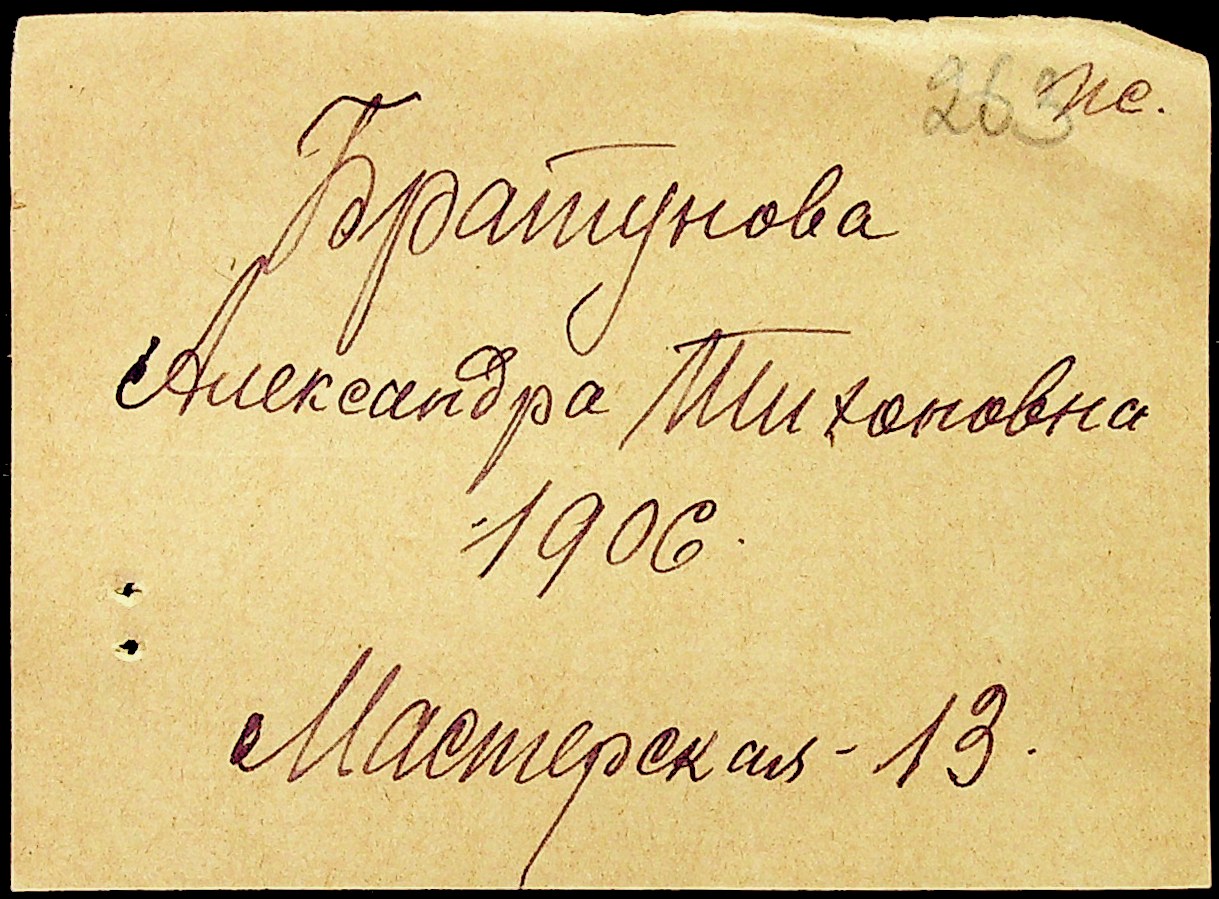 263 пс.
Братунова
Александра Тихоновна
1906.
Мастерская - 13.